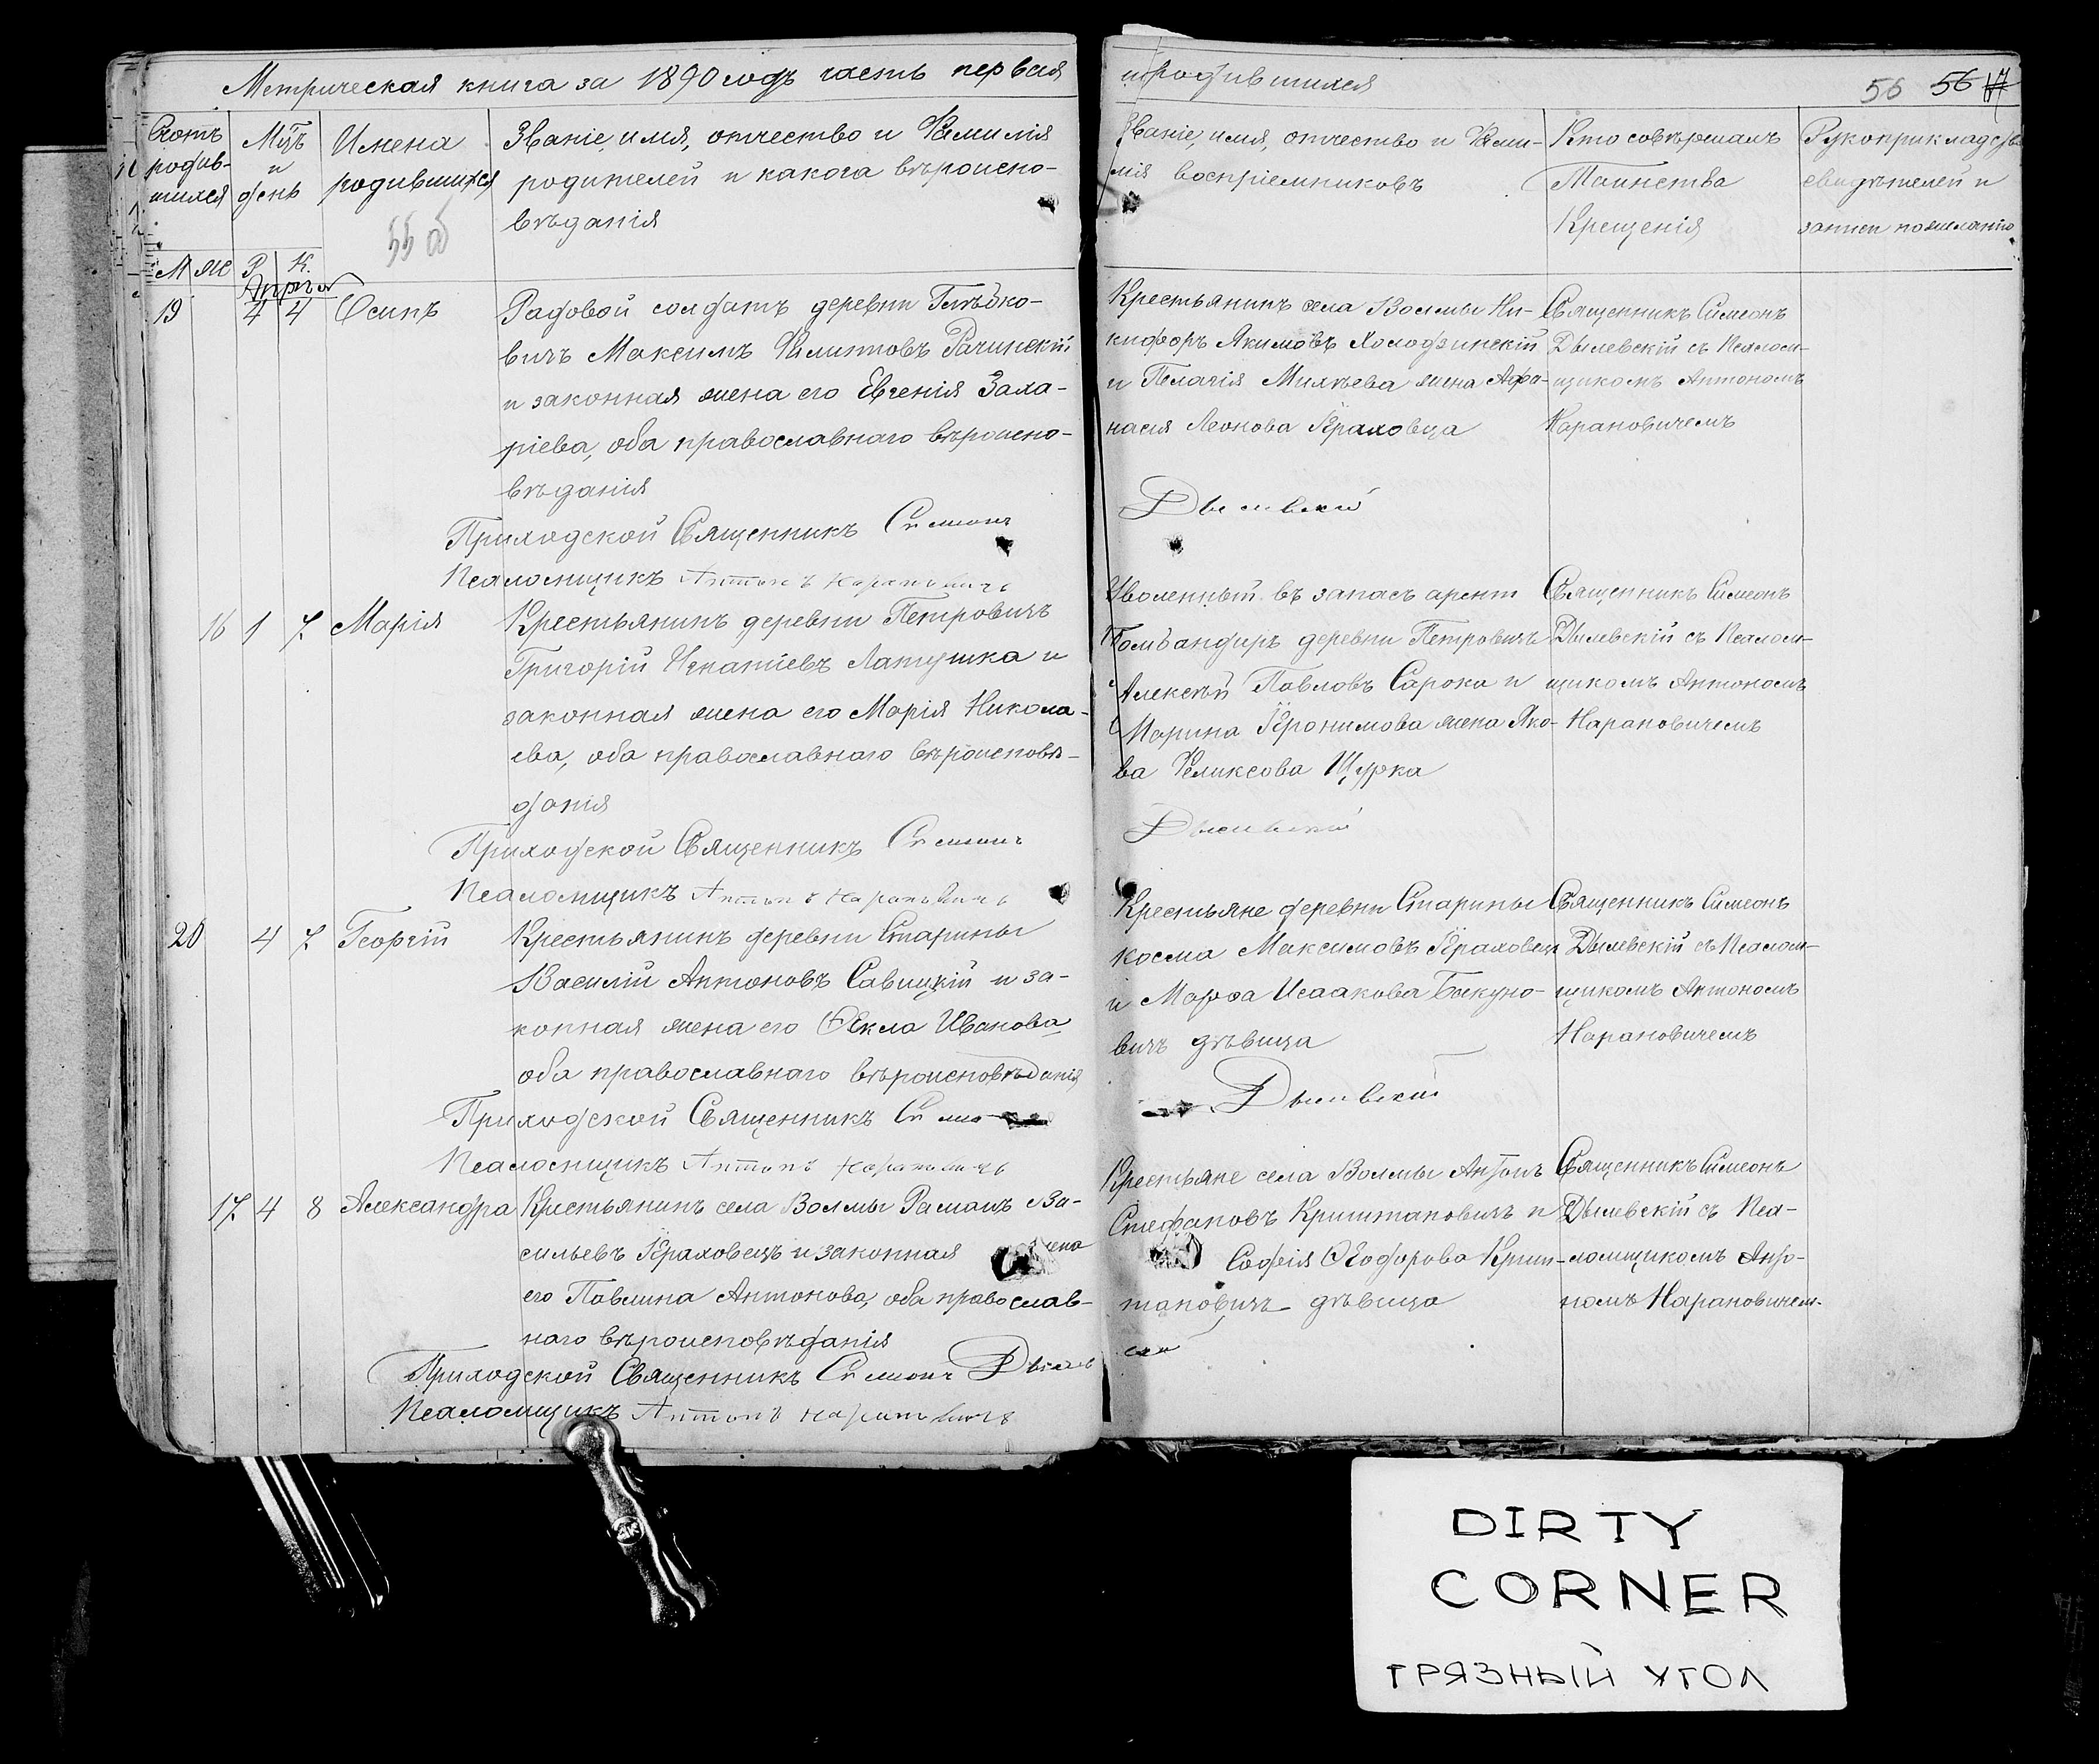 Метрическая книга за 1890 годъ часть первая
о родившихся
56 56
Счотъ родив-шихся
Мцъ и день
Имена родившихся
55 об
Званіе, имя, отчество и Фамилія
родителей и какога вѣроиспо-
вѣданія
Званіе, имя, отчество и Фами-
лія воспріемниковъ
Кто совѣршалъ
Таинства
Крещенія
Рукоприкладства
свидѣтелей и
записи по желанію
М Ж Р. К.
Апрель
19 4 4 Осипъ
Радовой солдатъ деревни Глѣбко-
вичъ Максимъ Филиповъ Рачинскій
и законная жена его Евгенія Заха-
ріева, оба православнаго вѣроиспо-
вѣданія
Приходской Священникъ Симеонъ
Псаломщикъ Антонъ Нарановичъ
Крестьянинъ села Волмы Ни-
кифоръ Якимовъ Холодзинскій
и Пелагія Михѣева жена Афа-
насія Леонова Краховца
Дылевскій
Священникъ Симеонъ
Дылевскій съ Псалом-
щикомъ Антономъ
Нарановичемъ
16 1 7 Марія
Крестьянинъ деревни Петровичъ
Григорій Игнатіевъ Латушка и
законная жена его Марія Никола-
ева, оба православнаго вѣроисповѣ-
данія
Приходской Священникъ Симеонъ
Псаломщикъ Антонъ Нарановичъ
Уволенный въ запасъ
деревни Петровичъ
Алексѣй Павловъ Сарока и
Марина Іеронимова жена Яко-
ва Феликсова Щурка
Дылевскій
Священникъ Симеонъ
Дылевскій съ Псалом-
щикомъ Антономъ
Нарановичемъ
20 4 7 Георгій
Крестьянинъ деревни Старины
Василій Антоновъ Савицкій и за-
конная жена его Ѳекла Иванова
оба православнаго вѣроисповѣданія
Приходской Священникъ Симео
Псаломщикъ Антонъ Нарановичъ
Крестьяне деревни Старины
Косма Максимовъ Краховец
и Марѳа Исаакова Бакуно-
вичъ дѣвица
Дылевскій
Священникъ Симеонъ
Дылевскій съ Псалом-
щикомъ Антономъ
Нарановичемъ
17 4 8 Александра
Крестьянинъ села Волмы Раманъ Ва-
сильевъ Краховецъ и законная жена
его Павлина Антонова, оба православ-
наго вѣроисповѣданія
Приходской Священникъ Симеонъ Дылев
Псаломщикъ Антонъ Нарановичъ
Крестьяне села Волмы Антонъ
Стефановъ Криштановичъ и
Софія Ѳеодорова Криш-
тановичъ дѣвица
скій
Священникъ Симеонъ
Дылевскій съ Пса-
ломщикомъ Анто-
номъ Нарановичем.
DIRTY
CORNER
ГРЯЗНЫЙ УГОЛ